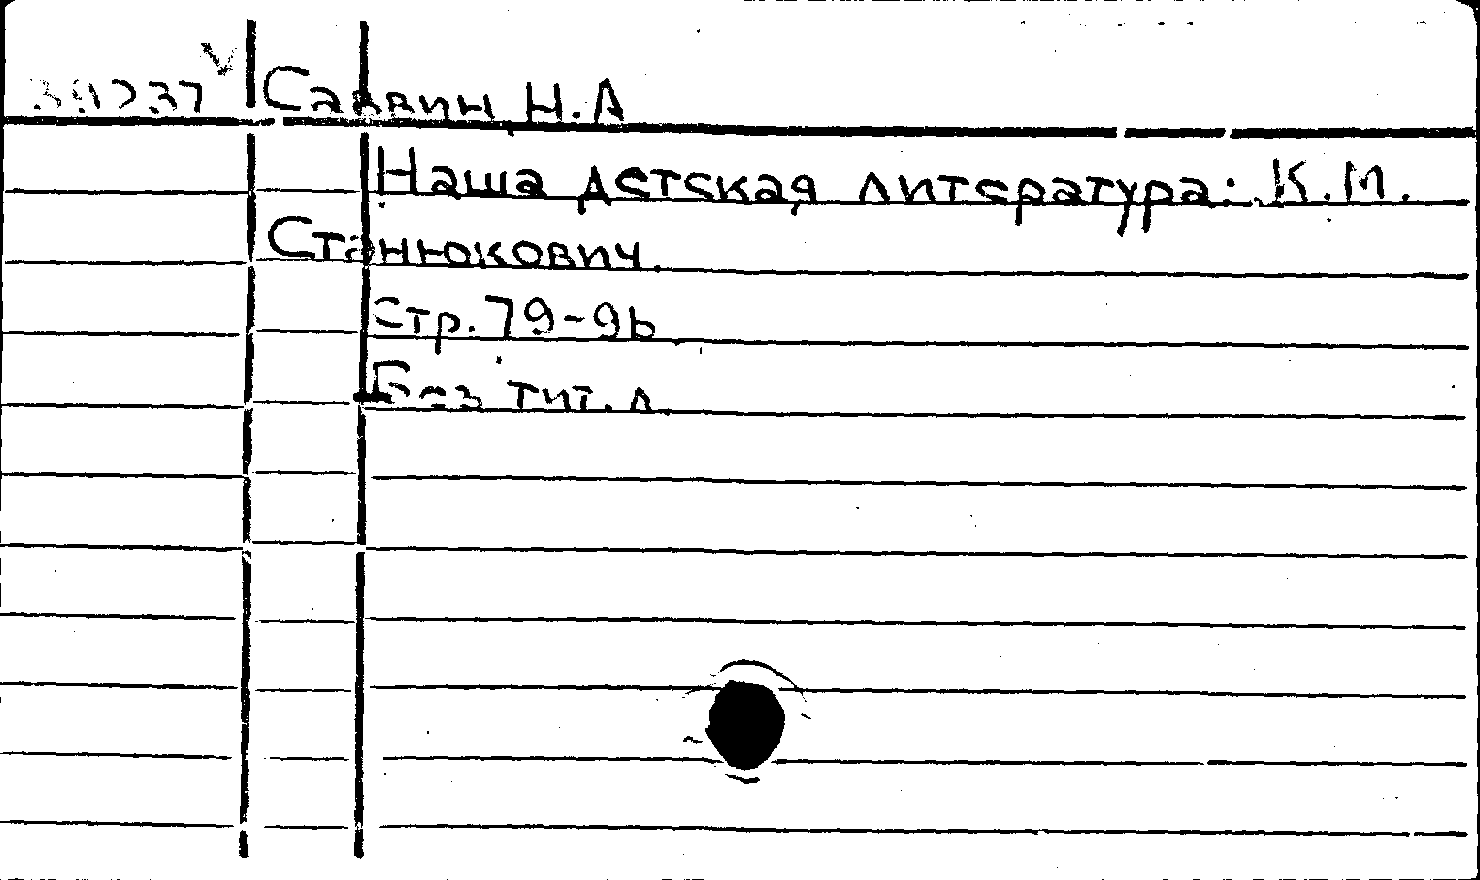 Саввин, Н.А
Наша детская литература: К.М.
Станюкович.
Стр. 79-96
Без тит. л.